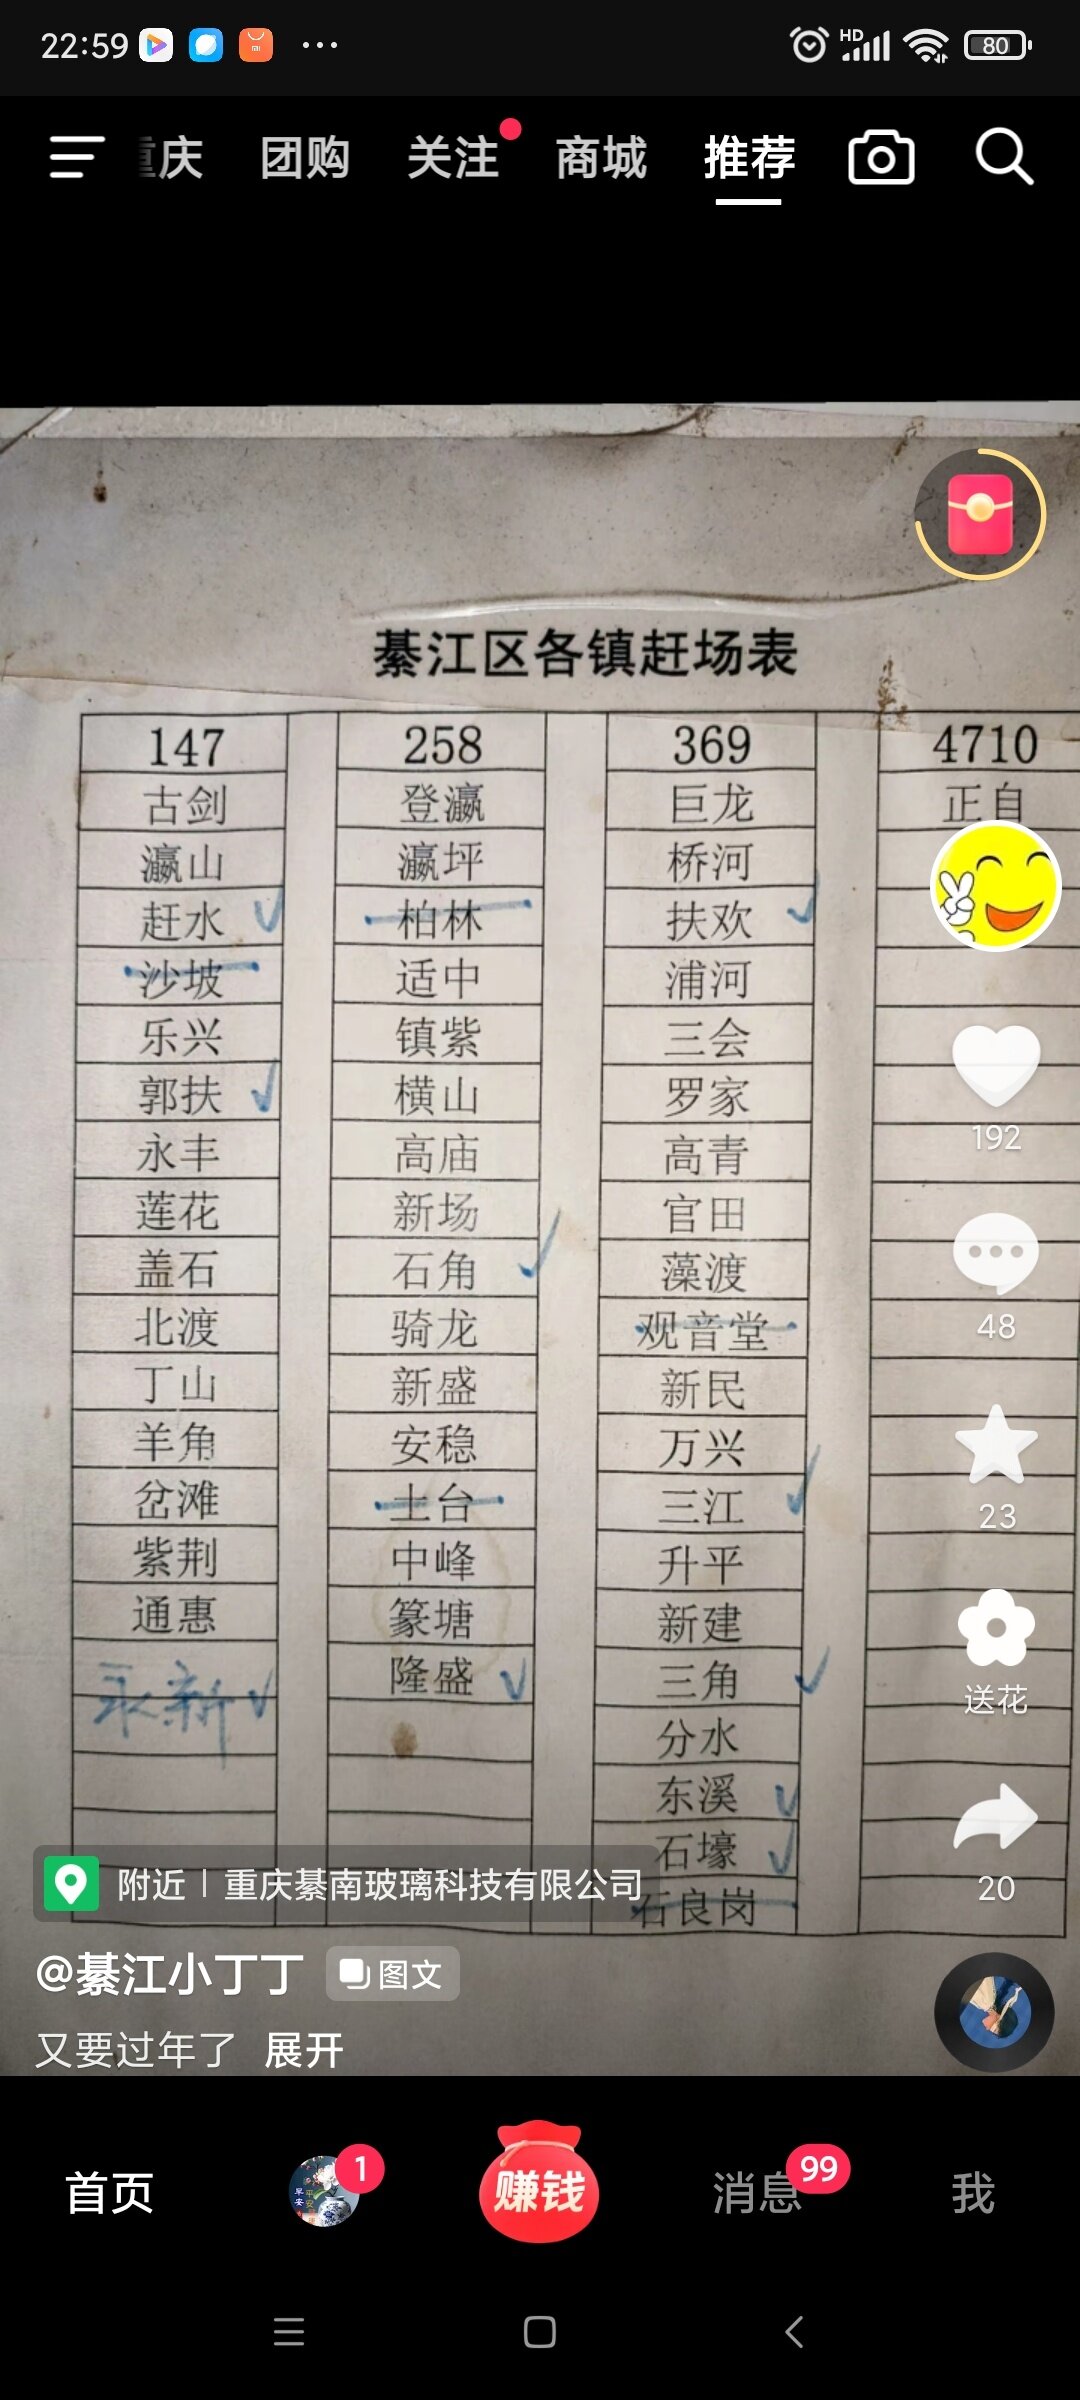 22:59
HD
80
重庆 团购 关注 商城 推荐
綦江区各镇赶场表
147 258 369 4710
古剑 登瀛 巨龙 正自
瀛山 瀛坪 桥河
赶水 柏林 扶欢
沙坡 适中 浦河
乐兴 镇紫 三会
郭扶 横山 罗家
永丰 高庙 高青
莲花 新场 官田
盖石 石角 藻渡
北渡 骑龙 观音堂
丁山 新盛 新民
羊角 安稳 万兴
岔滩 土台 三江
紫荆 中峰 升平
通惠 篆塘 新建
永新 隆盛 三角
分水
东溪
石壕
石良岗
192
48
23
送花
20
附近 重庆綦南玻璃科技有限公司
@綦江小丁丁 图文
又要过年了 展开
首页 1 赚钱 消息 99 我